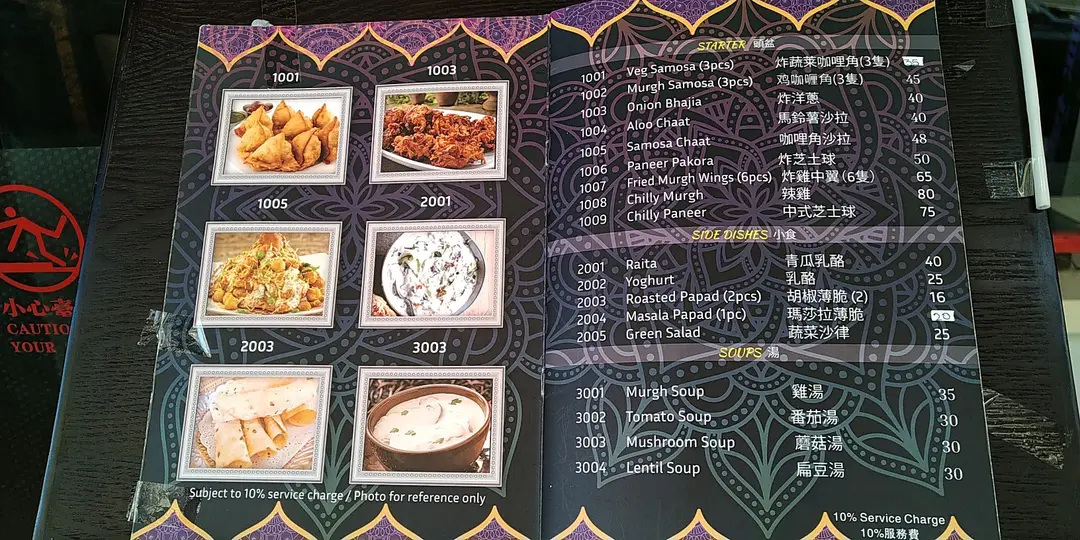 小心
CAUTIO
YOUR
1001
1003
1005
2001
2003
3003
Subject to 10% service charge / Photo for reference only
STARTER 頭盆
1001 Veg Samosa (3pcs) 炸蔬菜咖哩角(3隻) 35
1002 Murgh Samosa (3pcs) 鸡咖喱角(3隻) 45
1003 Onion Bhajia 炸洋蔥 40
1004 Aloo Chaat 馬鈴薯沙拉 40
1005 Samosa Chaat 咖哩角沙拉 48
1006 Paneer Pakora 炸芝士球 50
1007 Fried Murgh Wings (6pcs) 炸雞中翼(6隻) 65
1008 Chilly Murgh 辣雞 80
1009 Chilly Paneer 中式芝士球 75
SIDE DISHES 小食
2001 Raita 青瓜乳酪 40
2002 Yoghurt 乳酪 25
2003 Roasted Papad (2pcs) 胡椒薄脆 (2) 16
2004 Masala Papad (1pc) 瑪莎拉薄脆 20
2005 Green Salad 蔬菜沙律 25
SOUPS 湯
3001 Murgh Soup 雞湯 35
3002 Tomato Soup 番茄湯 30
3003 Mushroom Soup 蘑菇湯 30
3004 Lentil Soup 扁豆湯 30
10% Service Charge
10%服務費